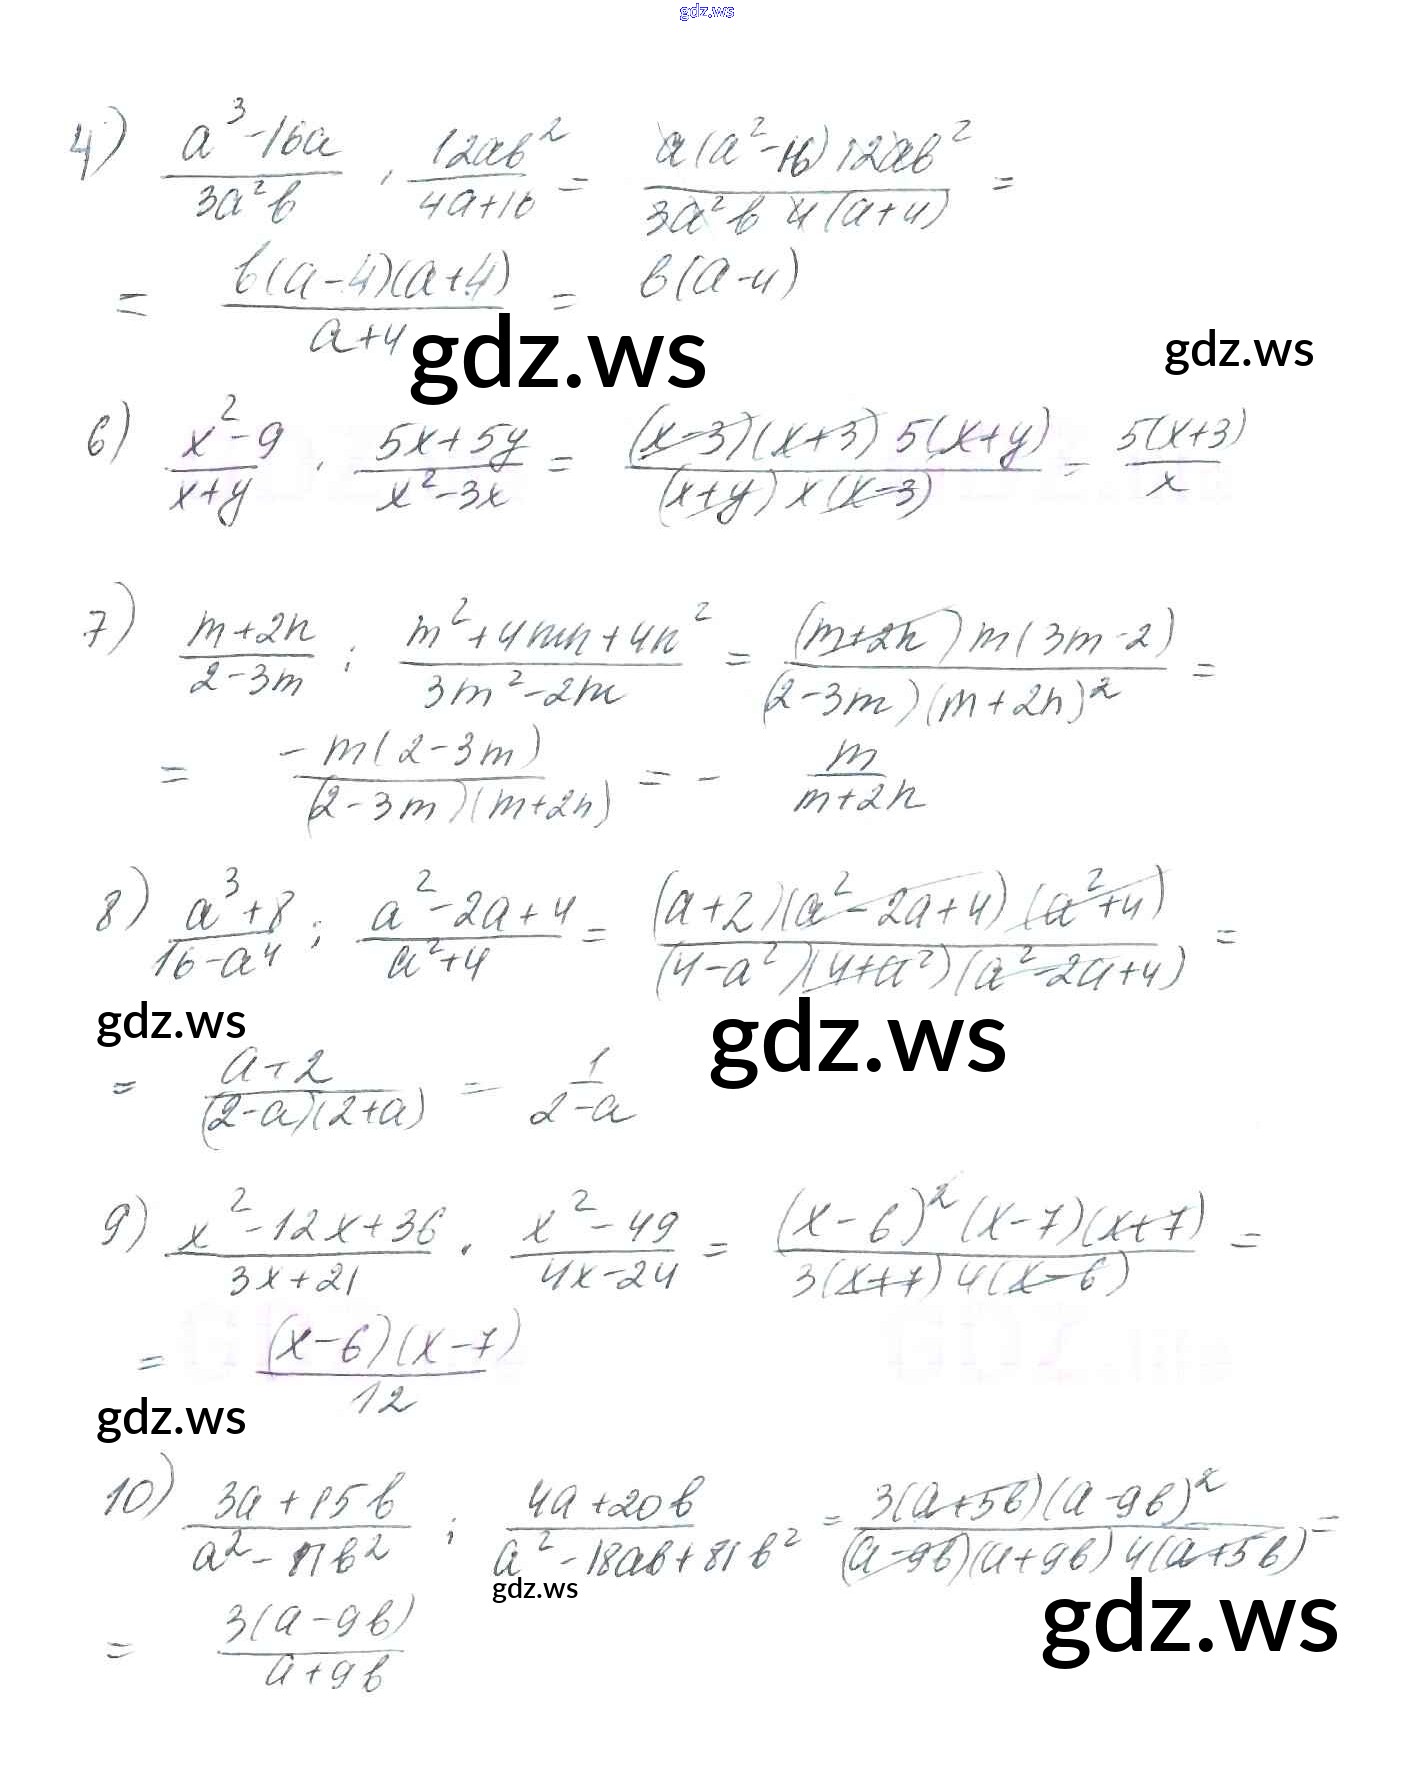 gdz.ws
4) (a³-16a)/(3a²b) · (12ab²)/(4a+16) = (a(a²-16) 12ab²)/(3a²b 4(a+4)) =
= (b(a-4)(a+4))/(a+4) = b(a-4)
gdz.ws gdz.ws
6) (x²-9)/(x+y) · (5x+5y)/(x²-3x) = ((x-3)(x+3) 5(x+y))/((x+y) x (x-3)) = (5(x+3))/x
7) (m+2n)/(2-3m) : (m²+4mn+4n²)/(3m²-2m) = ((m+2n) m(3m-2))/((2-3m)(m+2n)²) =
= (-m(2-3m))/((2-3m)(m+2n)) = - m/(m+2n)
8) (a³+8)/(16-a⁴) : (a²-2a+4)/(a²+4) = ((a+2)(a²-2a+4)(a²+4))/((4-a²)(4+a²)(a²-2a+4)) =
gdz.ws gdz.ws
= (a+2)/((2-a)(2+a)) = 1/(2-a)
9) (x²-12x+36)/(3x+21) · (x²-49)/(4x-24) = ((x-6)²(x-7)(x+7))/(3(x+7) 4(x-6)) =
= ((x-6)(x-7))/12
gdz.ws
10) (3a+15b)/(a²-81b²) : (4a+20b)/(a²-18ab+81b²) = (3(a+5b)(a-9b)²)/((a-9b)(a+9b) 4(a+5b)) =
gdz.ws gdz.ws
= (3(a-9b))/(a+9b)